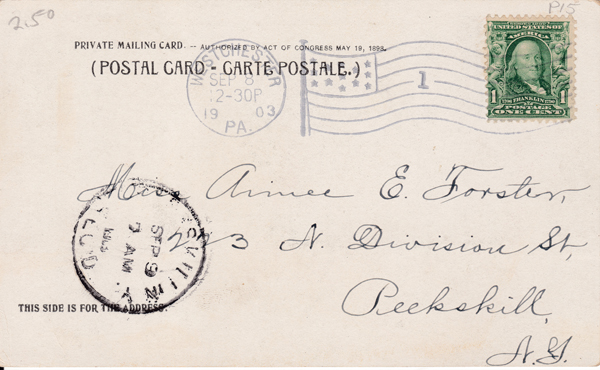 2.50
P15
PRIVATE MAILING CARD. -- AUTHORIZED BY ACT OF CONGRESS MAY 19, 1898.
(POSTAL CARD - CARTE POSTALE.)
WESTCHESTER
SEP 8
12-30P
1903
PA.
1
UNITED STATES OF AMERICA
1706 FRANKLIN 1790
1 POSTAGE 1
ONE CENT
Miss Aimee E. Forster,
223 N. Division St,
Peekskill,
N.Y.
SEP 9
7 AM
REC'D.
THIS SIDE IS FOR THE ADDRESS.